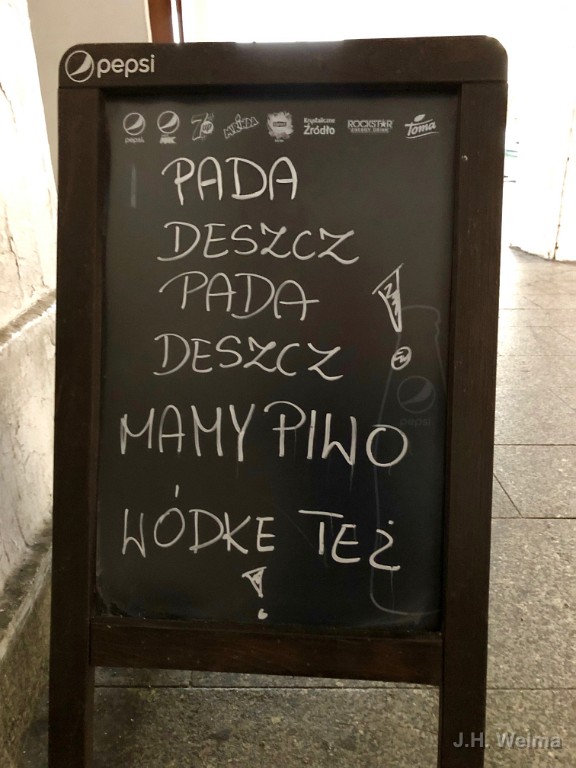 pepsi
pepsi
7up
Mirinda
Lipton
Krystaliczne
Źródło
ROCKSTAR
ENERGY DRINK
Toma
PADA
DESZCZ
PADA
DESZCZ !
MAMY PIWO
pepsi
WÓDKE TEŻ
!
J.H. Welma